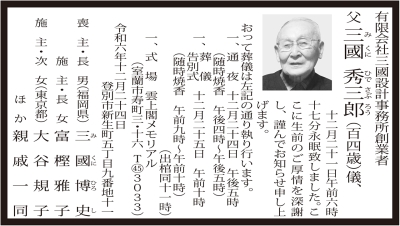 有限会社三國設計事務所創業者
父三國 秀三郎(百四歳)儀、
みくに ひでさぶろう
十二月二十一日午前六時
十七分永眠致しました。こ
こに生前のご厚情を深謝
し、謹んでお知らせ申し上
げます。
おって葬儀は左記の通り執り行います。
一、通夜 十二月二十四日 午後五時
(随時焼香 午後四時~午後五時)
一、葬儀告別式 十二月二十五日 午前十時
(随時焼香 午前九時~午前十時)
(出棺同十一時)
一、式場 雲上閣メモリアル
(室蘭市寿町三・十六 T㊺3033)
令和六年十二月二十四日
登別市新生町五丁目九番地十一
喪主・長男(福岡県) 三國博史
みくに ひろし
施主・長女 富樫雅子
施主・次女(東京都) 大谷規子
ほか親戚一同